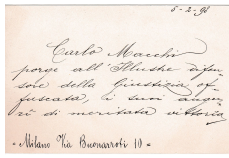 5-2-98
Carlo Macchi
porge all'Illustre difen
sore della Giustizia of
fuscata, i suoi augu
rî di meritata vittoria
"Milano Via Buonarroti 10"